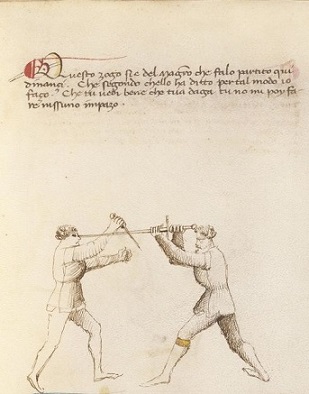 Questo zogo si e del Magistro che fa lo partito qui
dinanci. Che segondo chello ha ditto per tal modo io
faço. Che tu vedi bene che tua daga tu no mi poy fa-
re nissuno impazo.